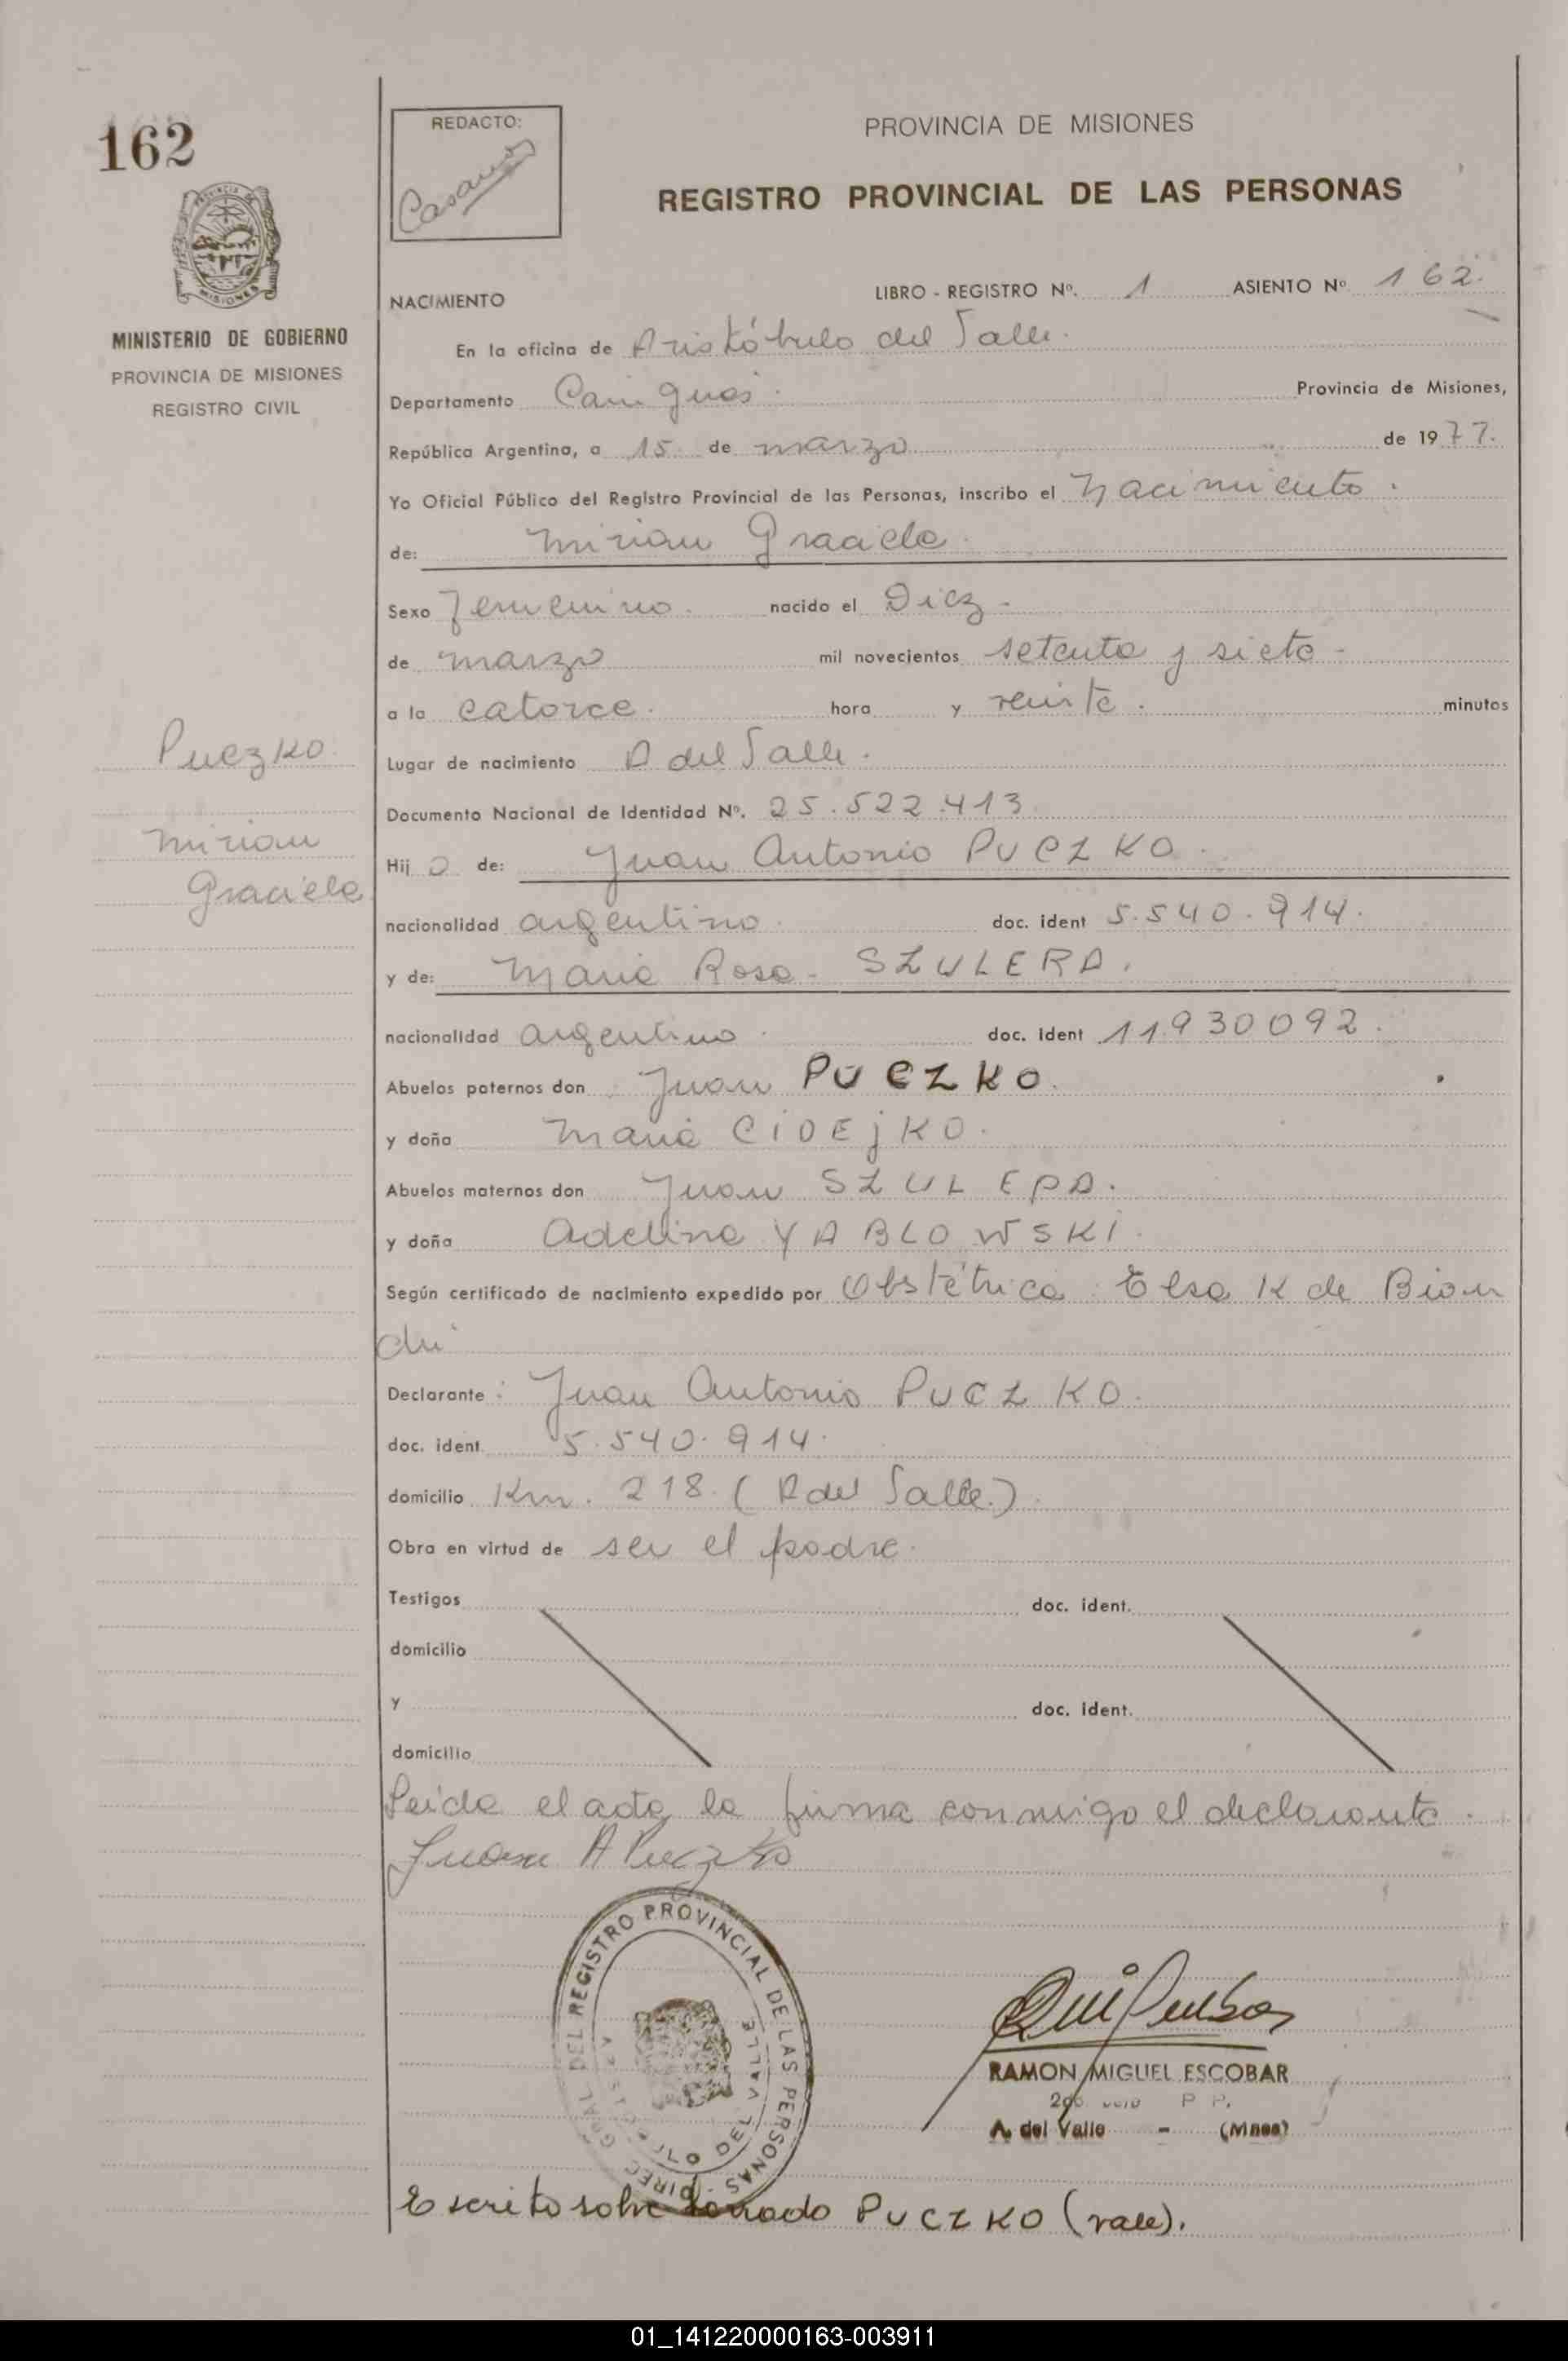 162
REDACTO:
PROVINCIA DE MISIONES
REGISTRO PROVINCIAL DE LAS PERSONAS
MINISTERIO DE GOBIERNO
PROVINCIA DE MISIONES
REGISTRO CIVIL
NACIMIENTO LIBRO - REGISTRO Nº. 1 ASIENTO Nº 162.
En la oficina de Aristóbulo del Valle.
Departamento Cainguás. Provincia de Misiones,
República Argentina, a 15 de marzo de 1977.
Yo Oficial Público del Registro Provincial de las Personas, inscribo el nacimiento.
de: Mirian Graciela.
Sexo femenino. nacido el Diez.
de marzo mil novecientos setenta y siete -
a la catorce. hora y veinte. minutos
Puezko.
Lugar de nacimiento A del Valle.
Documento Nacional de Identidad Nº. 25.522.413.
Mirian
Hija de: Juan Antonio PUCZKO.
Graciela
nacionalidad argentino. doc. ident 5.540.914.
y de: Maria Rosa - SZULEPA.
nacionalidad argentina. doc. ident 11930092.
Abuelos paternos don Juan PUCZKO.
y doña Maria CIDEjKO.
Abuelos maternos don Juan SZULEPA.
y doña Adelina YABLOWSKI.
Según certificado de nacimiento expedido por Obstétrica: Elsa K de Bion
di
Declarante: Juan Antonio PUCZKO.
doc. ident. 5.540.914.
domicilio Km. 218. (A del Valle.).
Obra en virtud de ser el padre.
Testigos doc. ident.
domicilio
y doc. ident.
domicilio
Leida el acta la firma conmigo el declarante.
Juan A Puczko
DIREC. GRAL. DEL REGISTRO PROVINCIAL DE LAS PERSONAS
DEL VALLE
RAMON MIGUEL ESCOBAR
A. del Valle - (Mnes)
Escrito sobre borrado PUCZKO (vale).
01_141220000163-003911